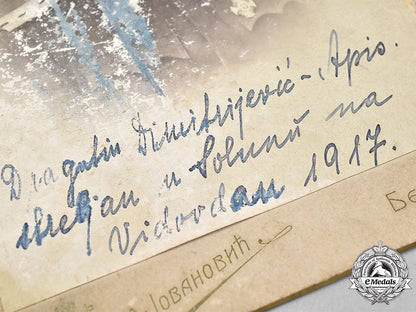 Dragutin Dimitrijević-Apis.
streljan u Solunu na
Vidovdan 1917.
ЈОВАНОВИЋ
Бе
eMedals